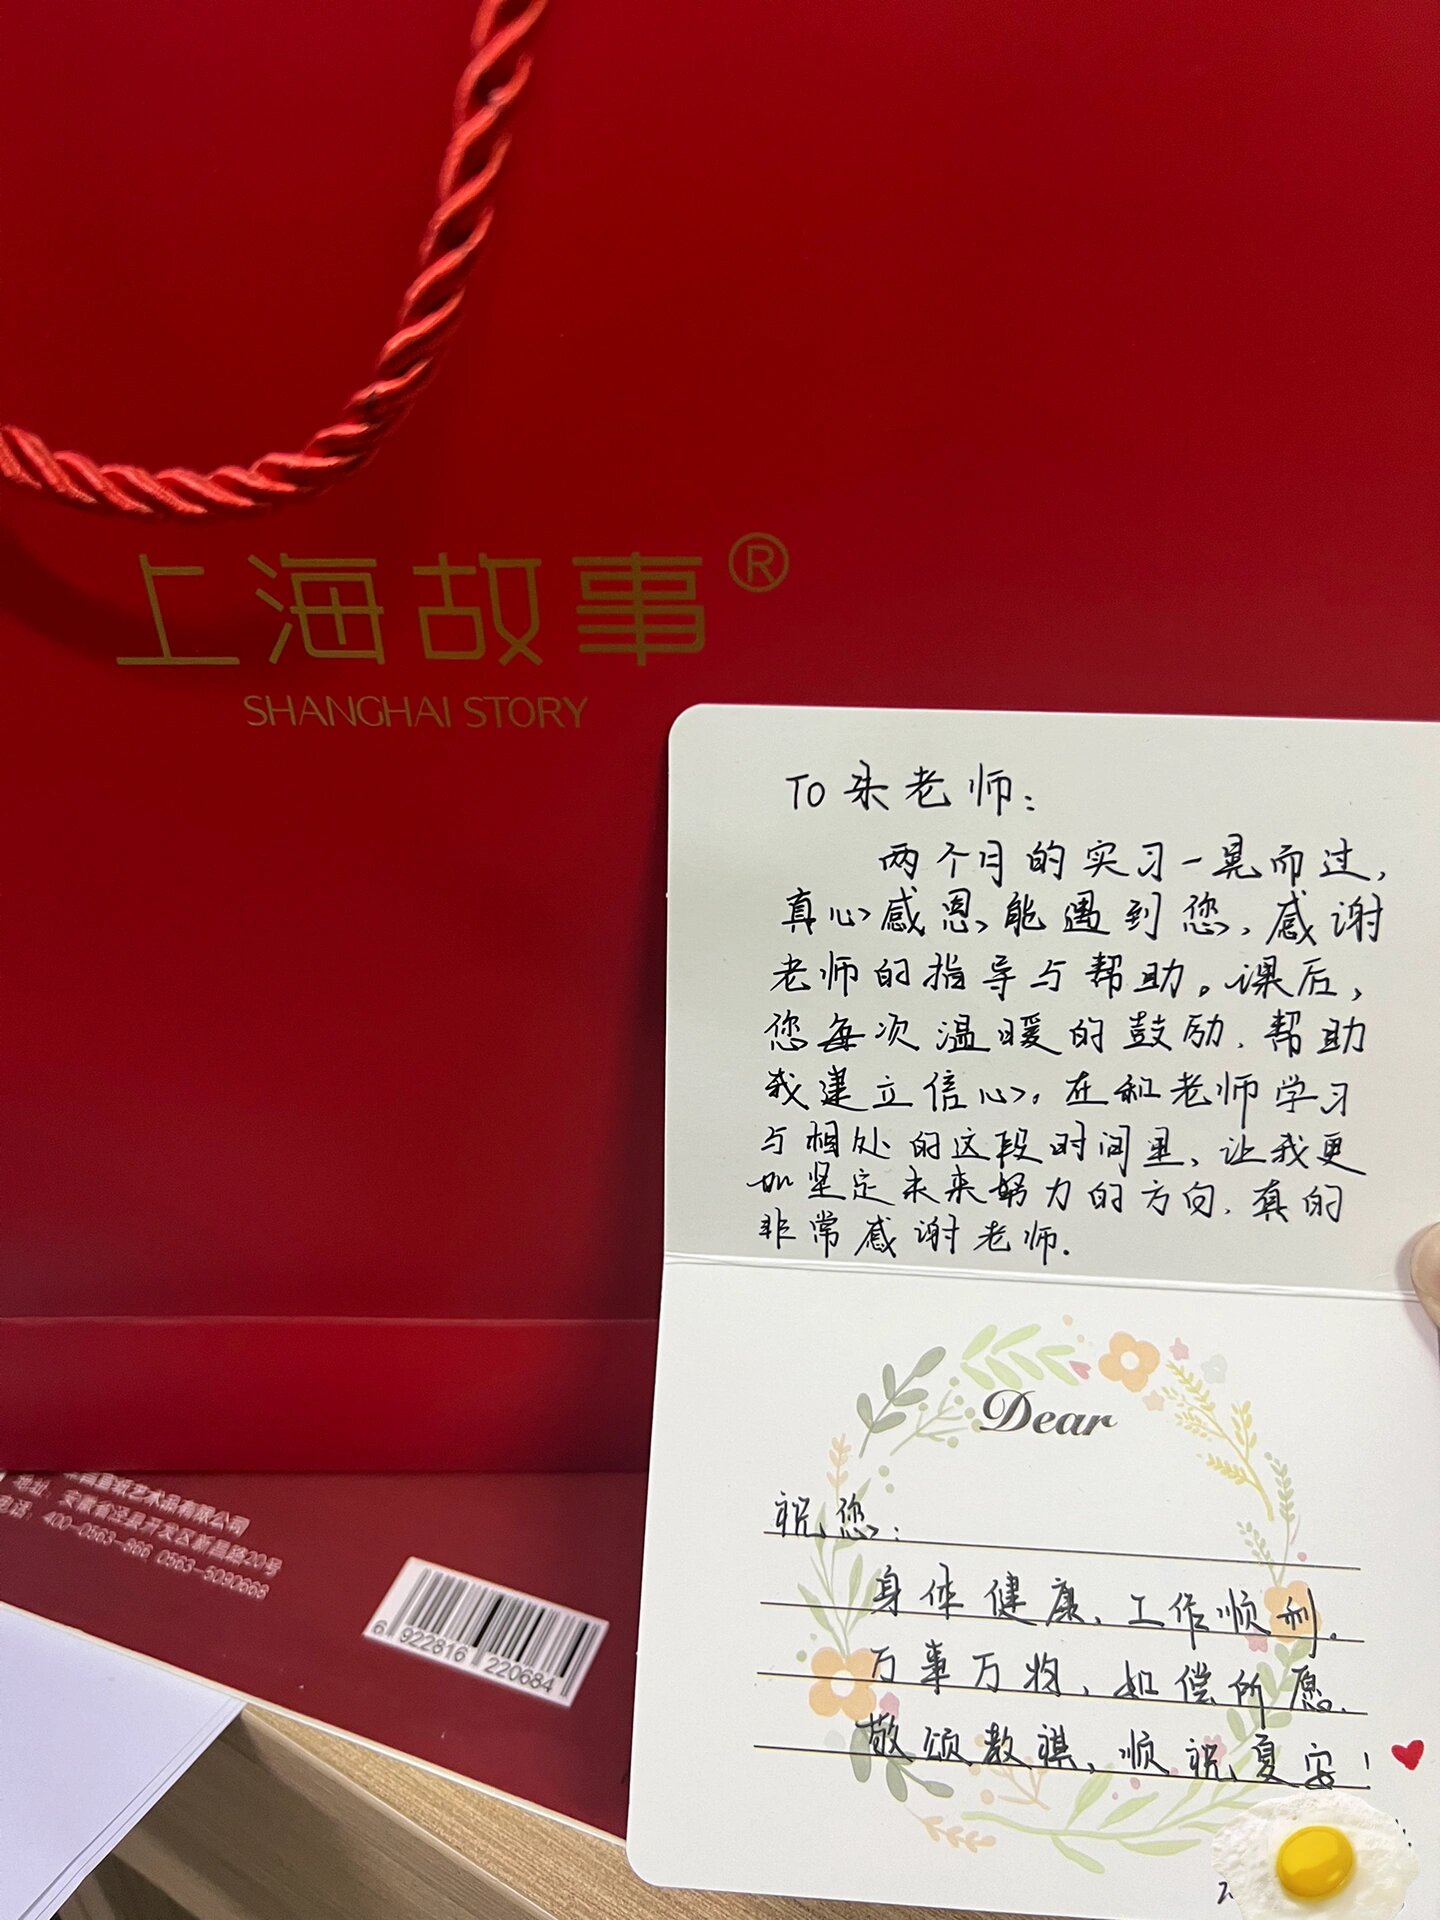 上海故事®
SHANGHAI STORY
To 朱老师：
两个月的实习一晃而过，
真心感恩能遇到您，感谢
老师的指导与帮助。课后，
您每次温暖的鼓励，帮助
我建立信心。在和老师学习
与相处的这段时间里，让我更
加坚定未来努力的方向，真的
非常感谢老师.
Dear
祝您：
身体健康、工作顺利。
万事万物，如偿所愿.
敬颂教祺，顺祝夏安！
宣纸艺术品有限公司
地址：安徽省泾县开发区新昌路20号
电话：400-0563-866 0563-5090666
6 922816 220684